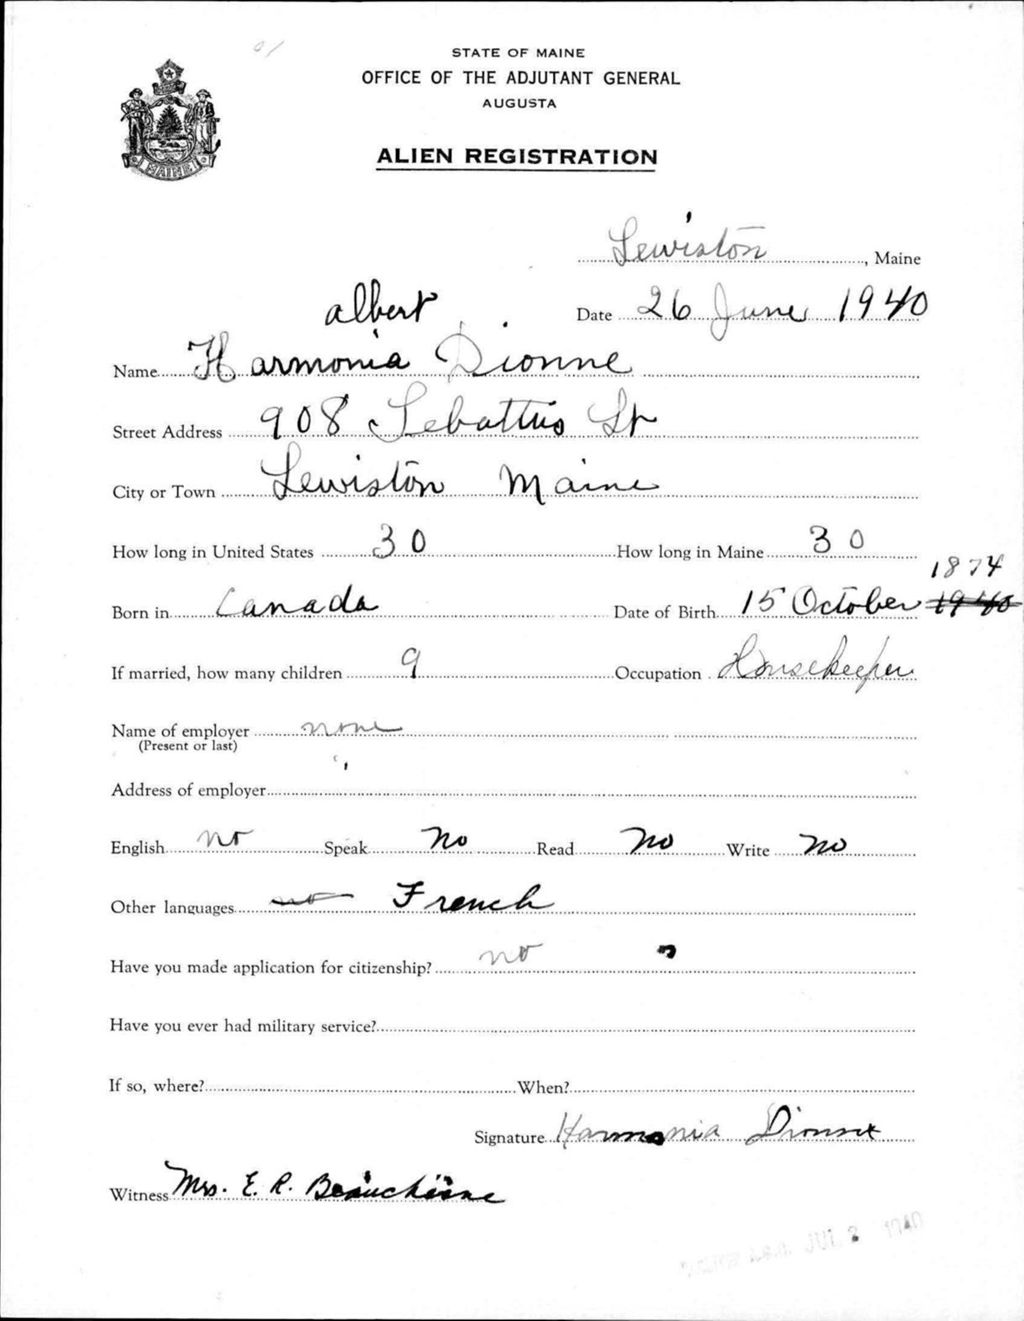 STATE OF MAINE
OFFICE OF THE ADJUTANT GENERAL
AUGUSTA
ALIEN REGISTRATION
MAINE
Lewiston, Maine
Date 26 June 1940
albert
Name Harmonia Dionne
Street Address 908 Sebattus St
City or Town Lewiston Maine
How long in United States 30 How long in Maine 30
1874
Born in Canada Date of Birth 15 October 1940
If married, how many children 9 Occupation Housekeeper
Name of employer none
(Present or last)
Address of employer
English no Speak No Read No Write No
Other languages no French
Have you made application for citizenship? no
Have you ever had military service?
If so, where? When?
Signature Harmonia Dionne
Witness Mrs. E. R. Beauchesne
JUL 2 1940